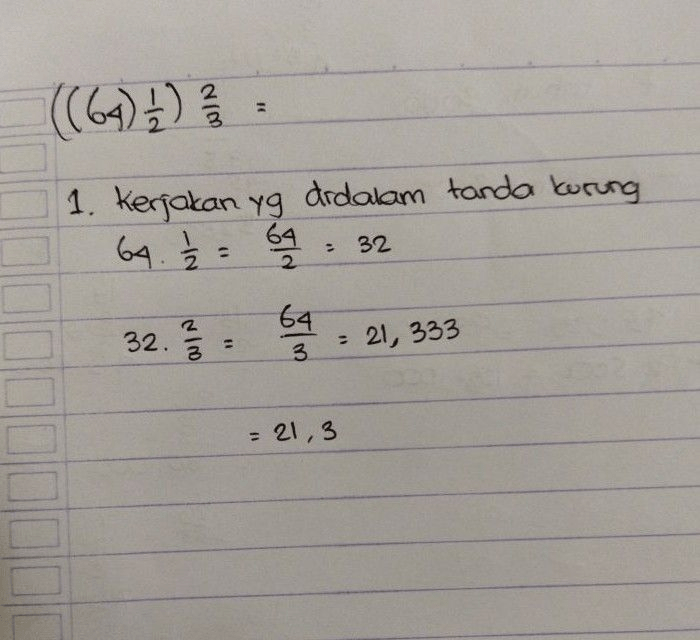 ((64) 1/2) 2/3 =
1. Kerjakan yg didalam tanda kurung
64 . 1/2 = 64/2 = 32
32 . 2/3 = 64/3 = 21, 333
= 21, 3